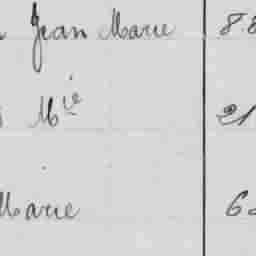 Jean Marie 8.
Mie 21
Marie 6